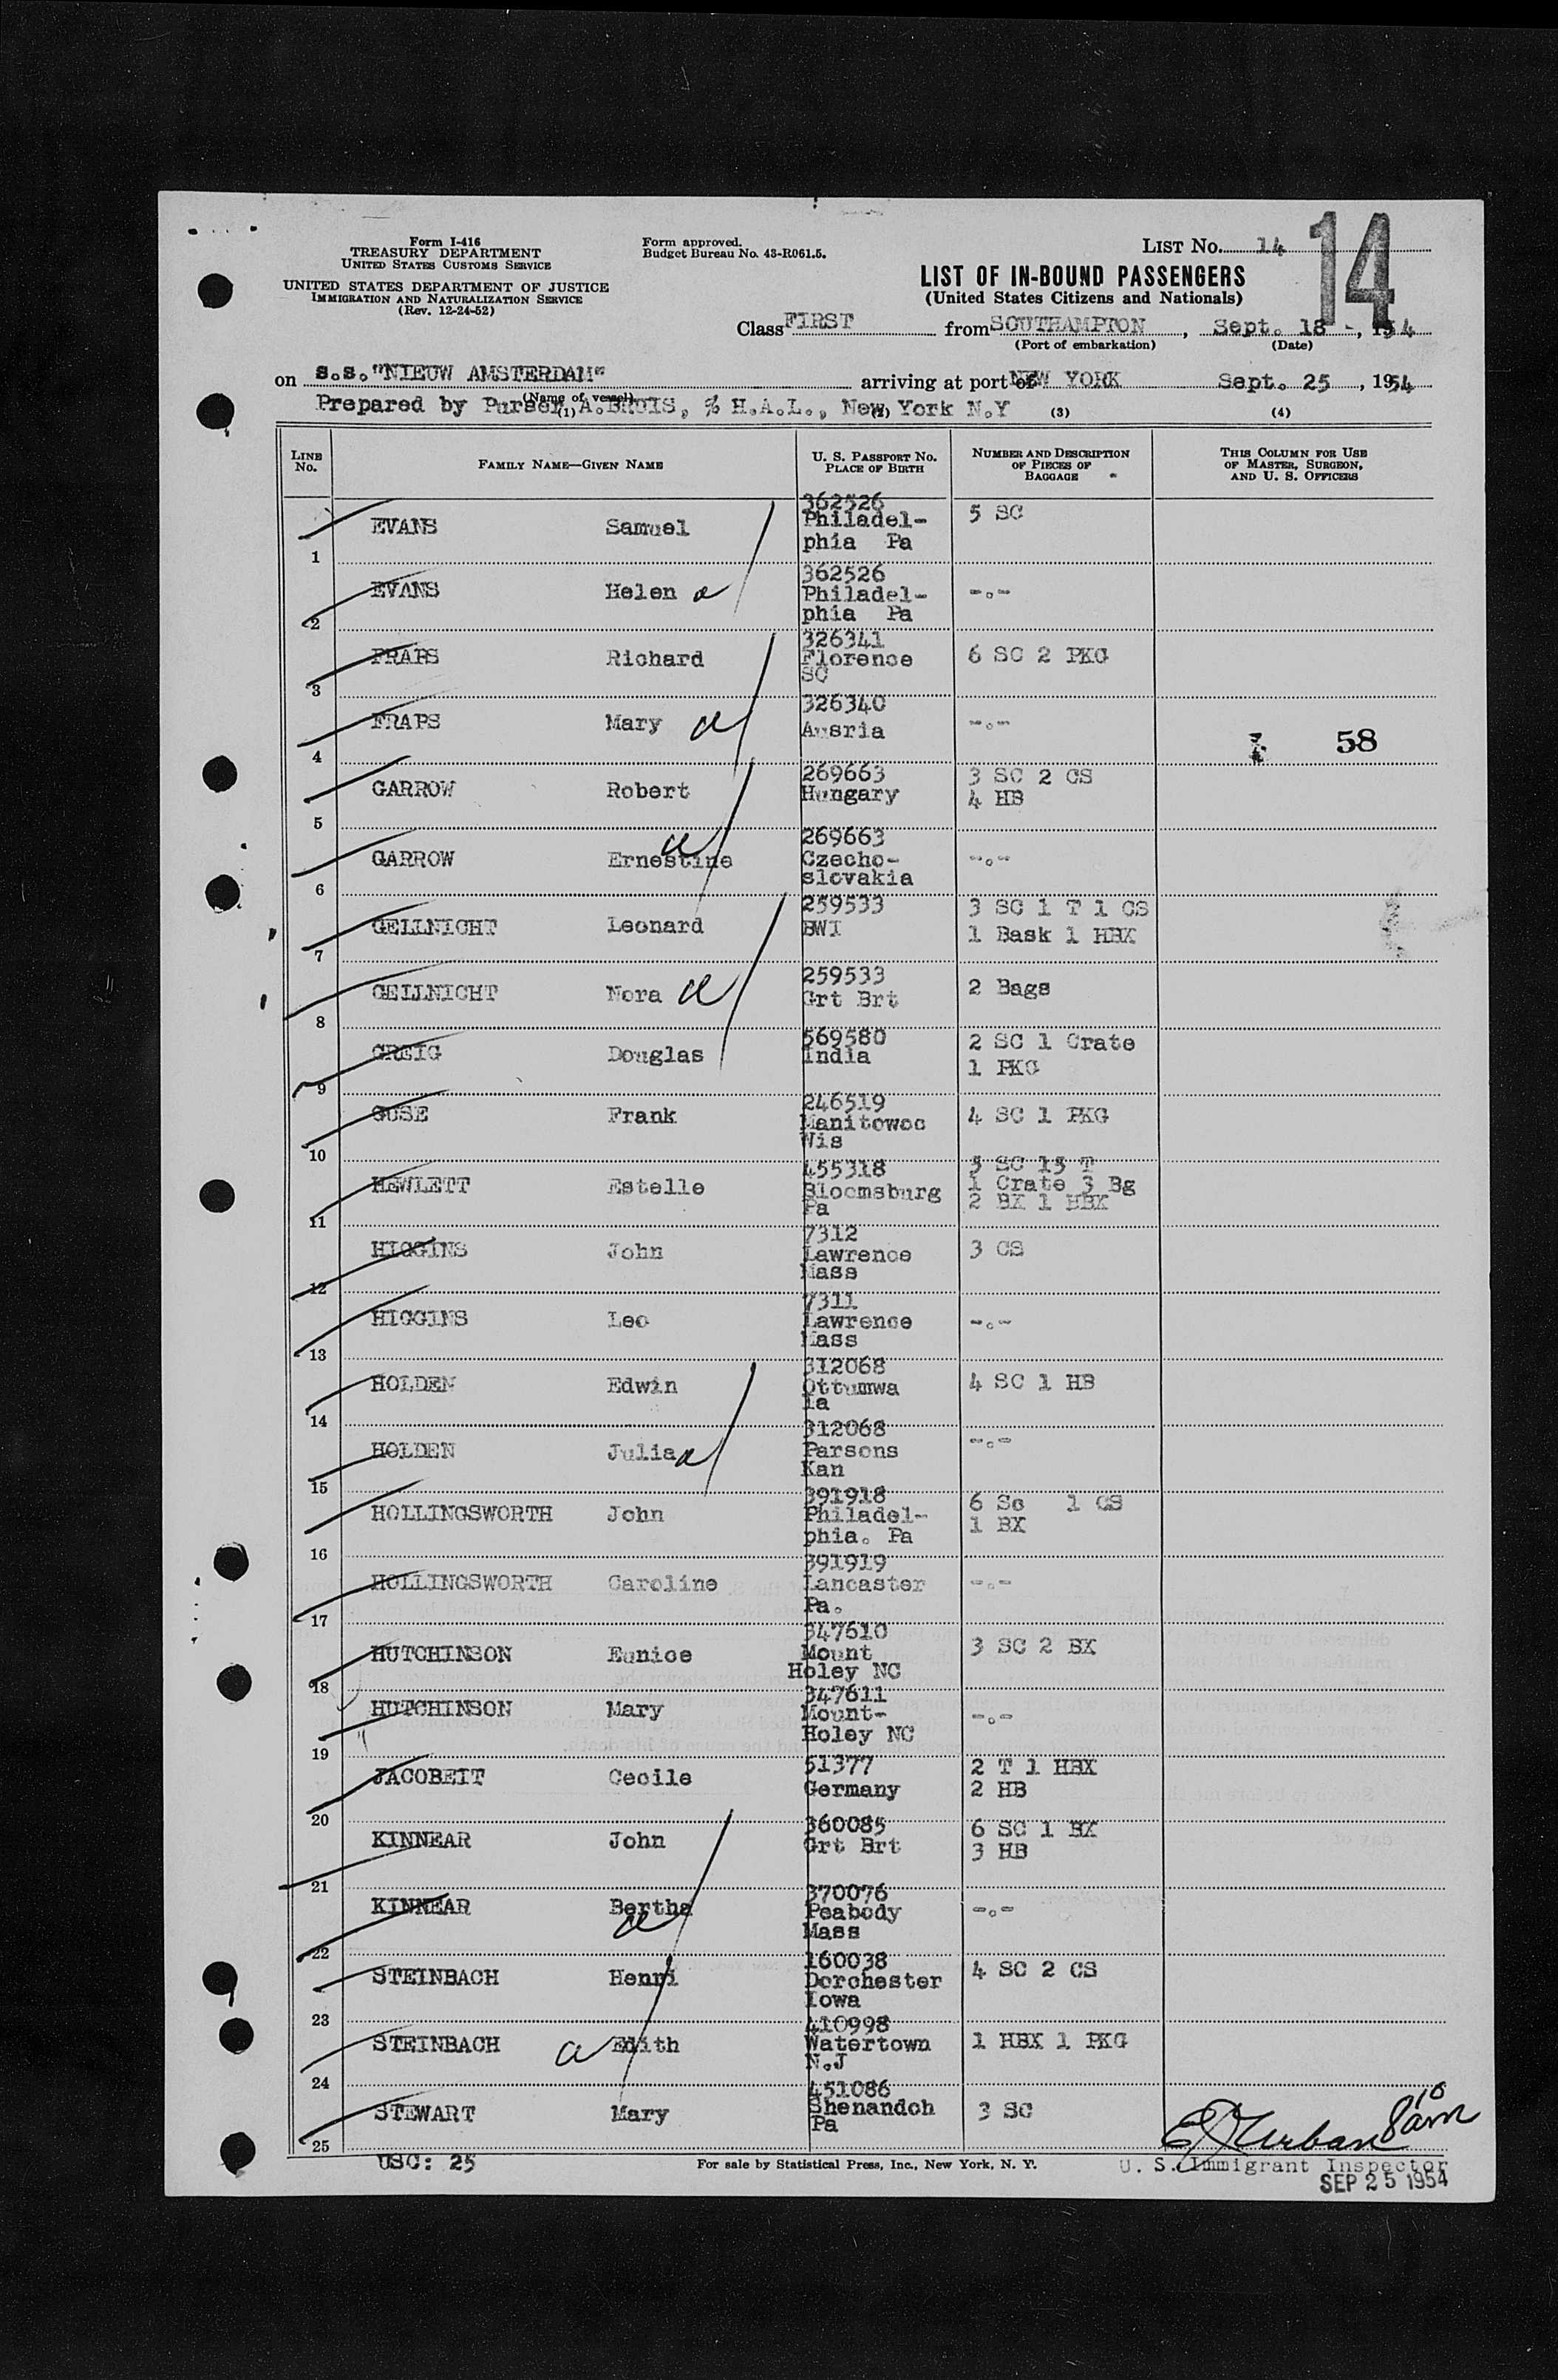 Form I-416
TREASURY DEPARTMENT
UNITED STATES CUSTOMS SERVICE
UNITED STATES DEPARTMENT OF JUSTICE
IMMIGRATION AND NATURALIZATION SERVICE
(Rev. 12-24-52)
Form approved.
Budget Bureau No. 43-R061.5.
LIST NO. 14
14
LIST OF IN-BOUND PASSENGERS
(United States Citizens and Nationals)
Class FIRST from SOUTHAMPTON, Sept. 18, 1954
(Port of embarkation) (Date)
on s.s. "NIEUW AMSTERDAM" arriving at port of NEW YORK Sept. 25, 1954
(Name of vessel)
Prepared by Purser, A. BRUIS, % H.A.L., New York N.Y
(1) (2) (3) (4)
LINE NO. FAMILY NAME—GIVEN NAME U. S. PASSPORT NO. PLACE OF BIRTH NUMBER AND DESCRIPTION OF PIECES OF BAGGAGE THIS COLUMN FOR USE OF MASTER, SURGEON, AND U. S. OFFICERS
1 EVANS Samuel 362526 Philadel-phia Pa 5 SC
2 EVANS Helen 362526 Philadel-phia Pa -.-
3 FRAPS Richard 326341 Florence SC 6 SC 2 PKG
4 FRAPS Mary 326340 Ausria -.- 58
5 GARROW Robert 269663 Hungary 3 SC 2 CS 4 HB
6 GARROW Ernestine 269663 Czecho-slovakia -.-
7 GELLNICHT Leonard 259533 BWI 3 SC 1 T 1 CS 1 Bask 1 HBX
8 GELLNICHT Nora 259533 Grt Brt 2 Bags
9 GREIG Douglas 569580 India 2 SC 1 Crate 1 PKG
10 GUSE Frank 246519 Manitowoc Wis 4 SC 1 PKG
11 HEWLETT Estelle 455318 Bloomsburg Pa 5 SC 15 T 1 Crate 3 Bg 2 BX 1 HBX
12 HIGGINS John 7312 Lawrence Mass 3 CS
13 HIGGINS Leo 7311 Lawrence Mass -.-
14 HOLDEN Edwin 312068 Ottumwa Ia 4 SC 1 HB
15 HOLDEN Julia 312068 Parsons Kan -.-
16 HOLLINGSWORTH John 391918 Philadel-phia. Pa 6 Sc 1 CS 1 BX
17 HOLLINGSWORTH Caroline 391919 Lancaster Pa. -.-
18 HUTCHINSON Eunice 347610 Mount Holey NC 3 SC 2 BX
19 HUTCHINSON Mary 347611 Mount-Holey NC -.-
20 JACOBEIT Cecile 51377 Germany 2 T 1 HBX 2 HB
21 KINNEAR John 360085 Grt Brt 6 SC 1 BX 3 HB
22 KINNEAR Bertha 370076 Peabody Mass -.-
23 STEINBACH Henri 160038 Dorchester Iowa 4 SC 2 CS
24 STEINBACH Edith 410998 Watertown N.J 1 HBX 1 PKG
25 STEWART Mary 451086 Shenandoh Pa 3 SC
USC: 25
For sale by Statistical Press, Inc., New York, N. Y.
U. S. Immigrant Inspector
SEP 25 1954